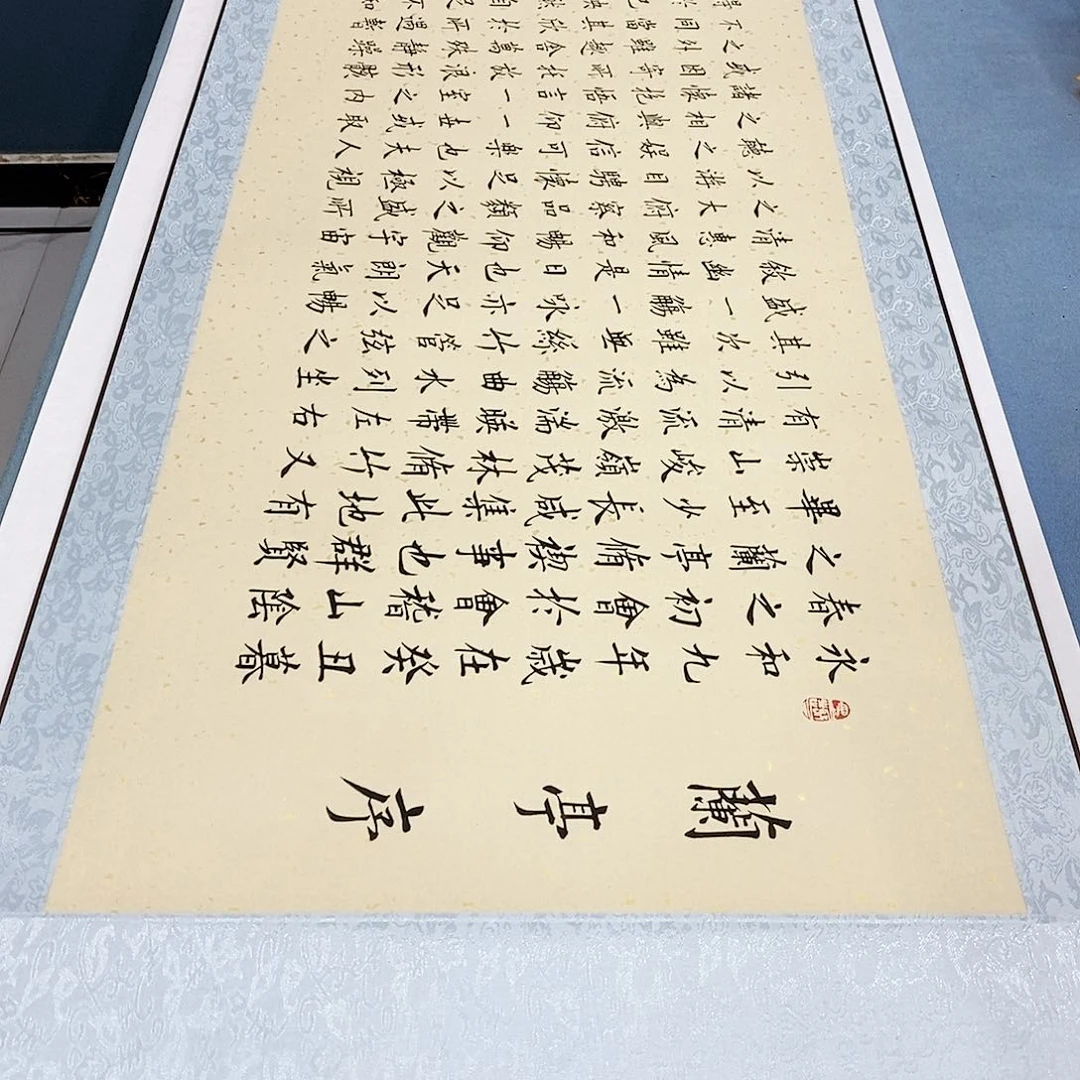 蘭亭序
永和九年歲在癸丑暮
春之初會於會稽山陰
之蘭亭脩禊事也群賢
畢至少長咸集此地有
崇山峻嶺茂林脩竹又
有清流激湍暎帶左右
引以為流觴曲水列坐
其次雖無絲竹管弦之
盛一觴一咏亦足以暢
敘幽情是日也天朗氣
清惠風和暢仰觀宇宙
之大俯察品類之盛所
以游目騁懷足以極視
聽之娱信可樂也夫人
之相與俯仰一世或取
諸懷抱悟言一室之內
或因寄所托放浪形骸
之外雖趣舍萬殊靜躁
不同當其欣於所遇暫